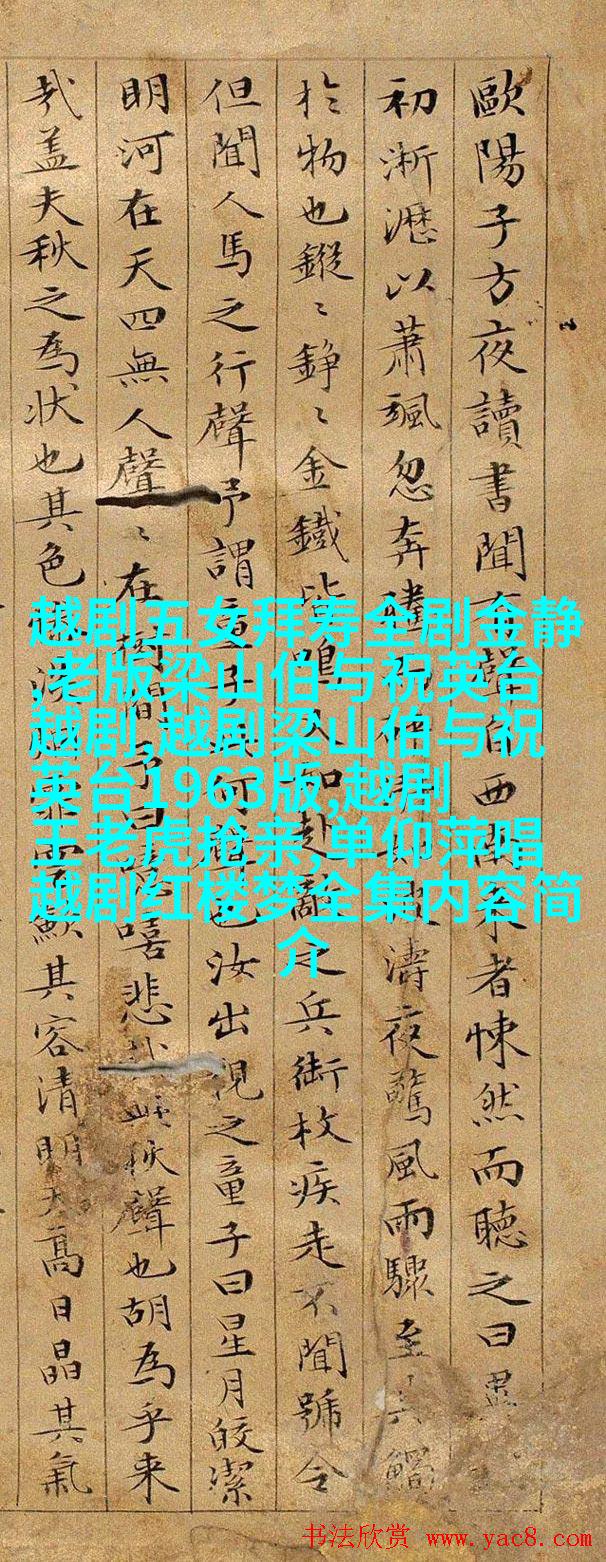 歐陽子方夜讀書聞有聲自西南來者悚然而聽之曰異
初淅瀝以蕭颯忽奔騰砰湃如波濤夜驚風雨驟至其觸
於物也鏦〻錚〻金鐵皆鳴又如赴敵之兵銜枚疾走不聞號令
但聞人馬之行聲予謂童子此何聲也汝出視之童子曰星月皎潔
明河在天四無人聲〻在樹間予曰噫嘻悲哉此秋聲也胡為乎来
哉盖夫秋之為狀也其色慘澹煙霏雲歛其容清明天高日晶其氣
越剧五女拜寿全剧金静
,老版梁山伯与祝英台
越剧,越剧梁山伯与祝
英台1963版,越剧
王老虎抢亲,单仰萍唱
越剧红楼梦全集内容简
介
书法欣赏 www.yac8.com